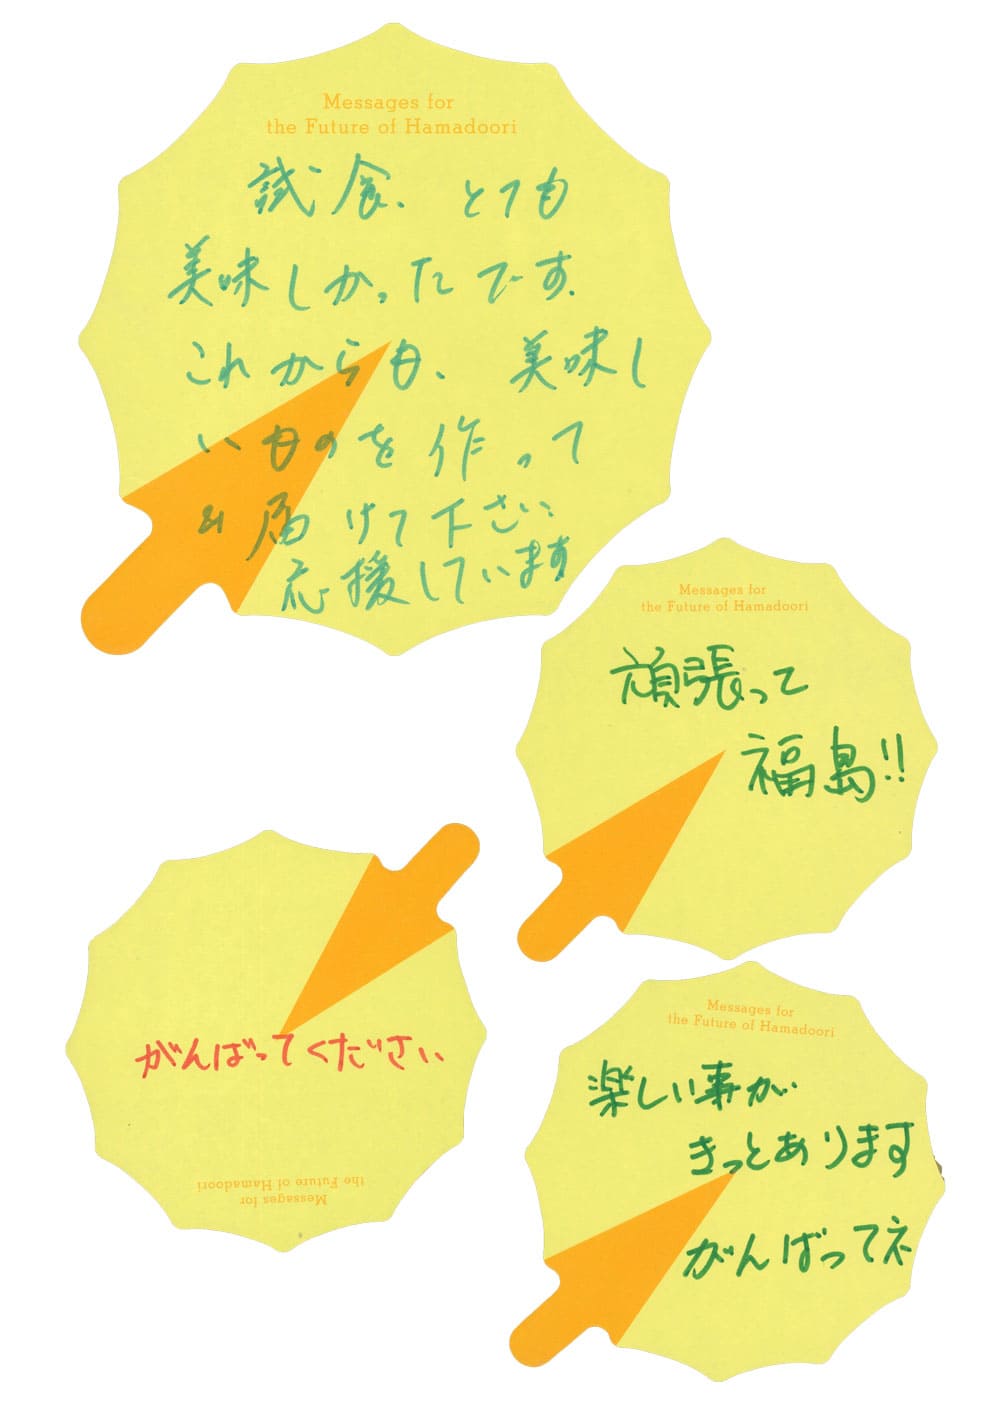 Messages for
the Future of Hamadoori
試食、とても
美味しかったです。
これからも、美味し
いものを作って
&届けて下さい
応援しています
Messages for
the Future of Hamadoori
頑張って
福島!!
がんばってください
Messages for
the Future of Hamadoori
Messages for
the Future of Hamadoori
楽しい事が
きっとあります
がんばってネ